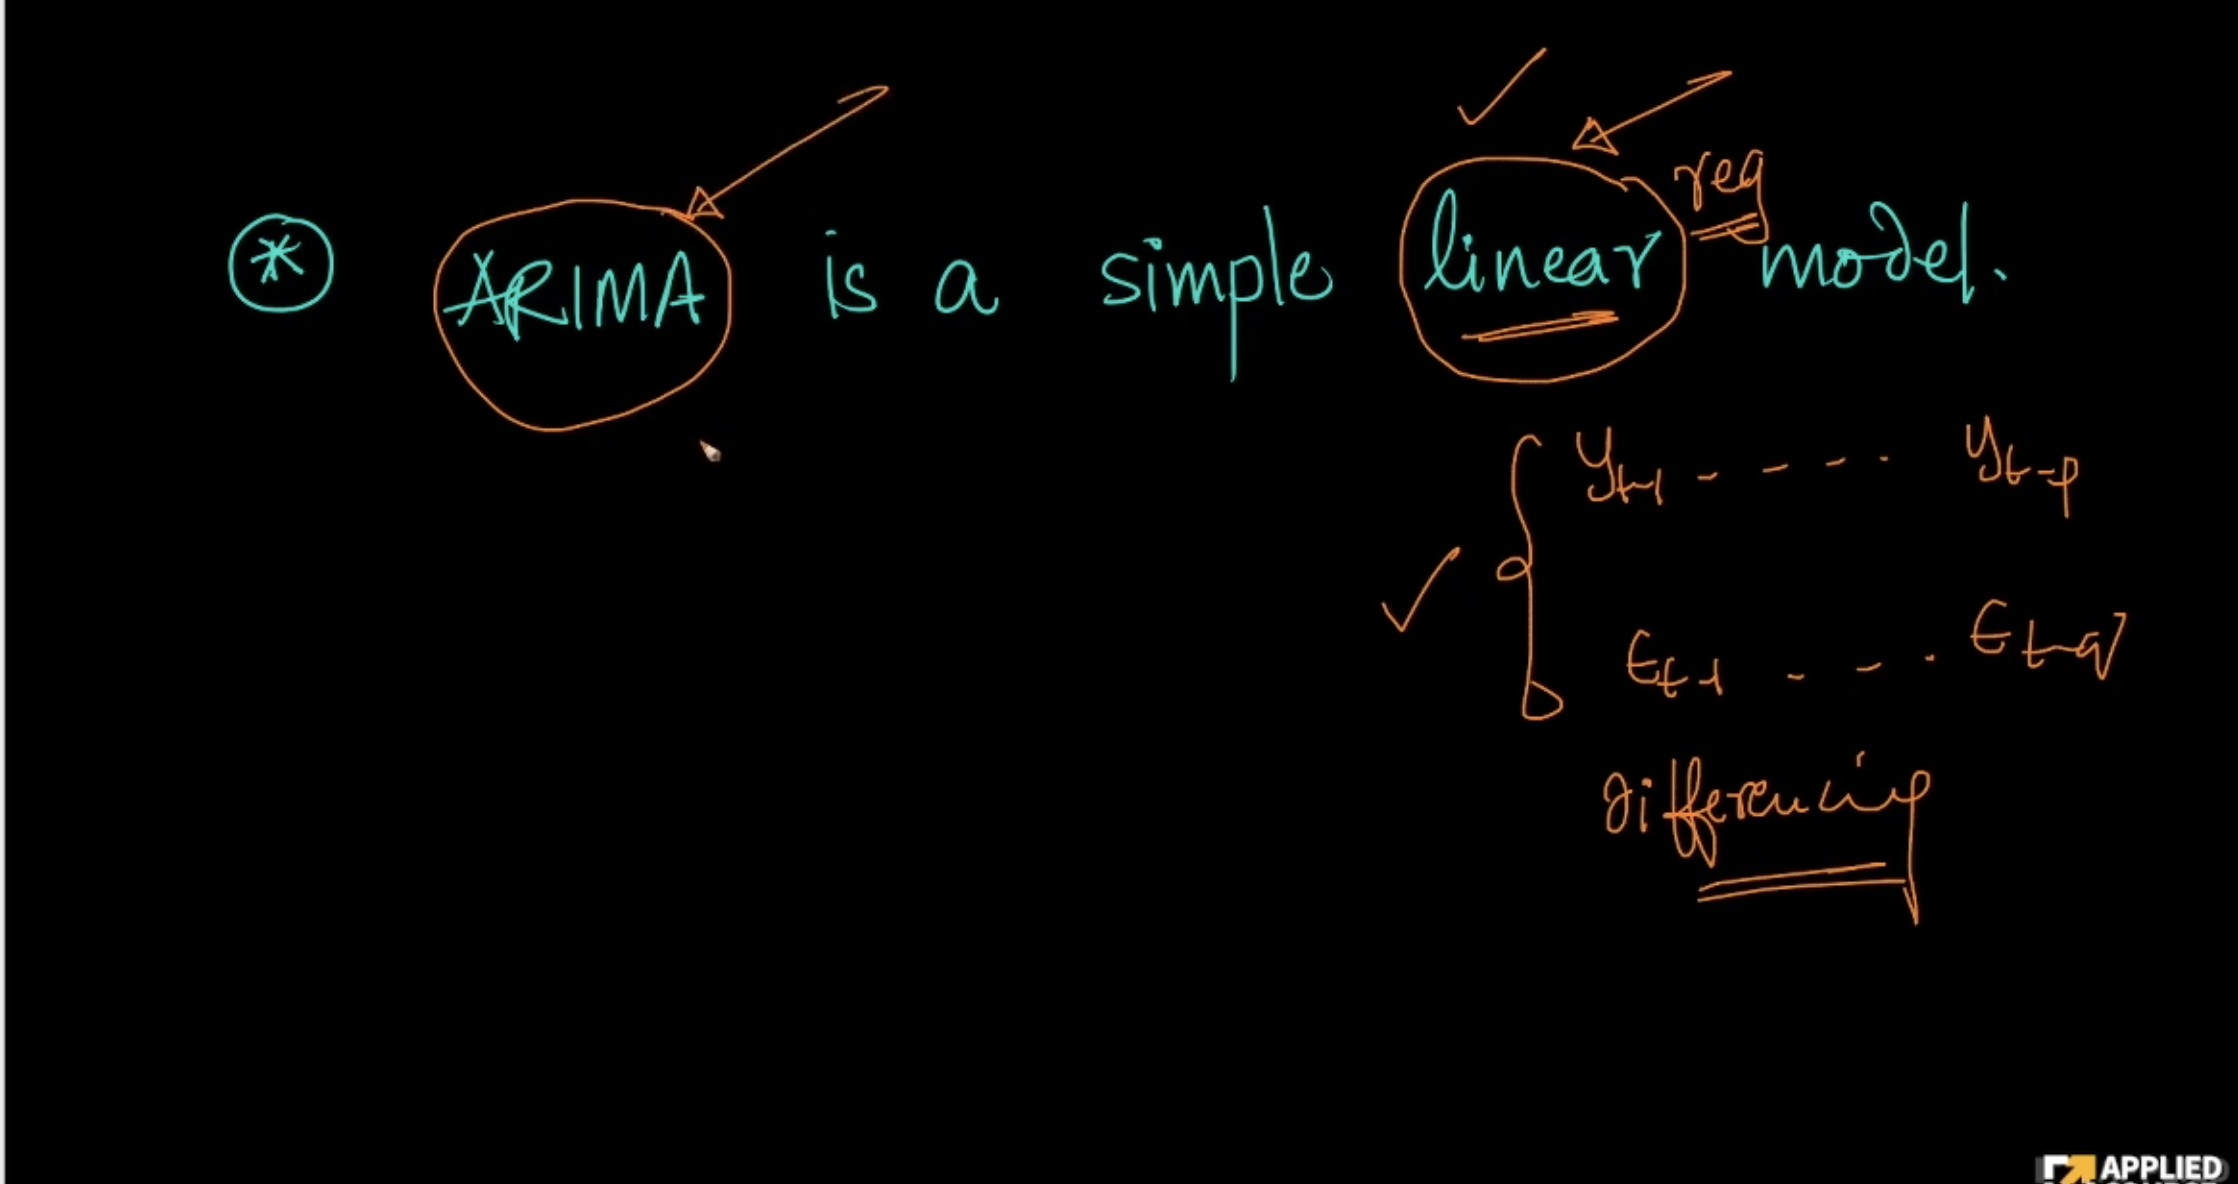 * ARIMA is a simple linear reg model.
y_{t-1} - - - - y_{t-p}
ε_{t-1} - - - ε_{t-q}
differencing
APPLIED